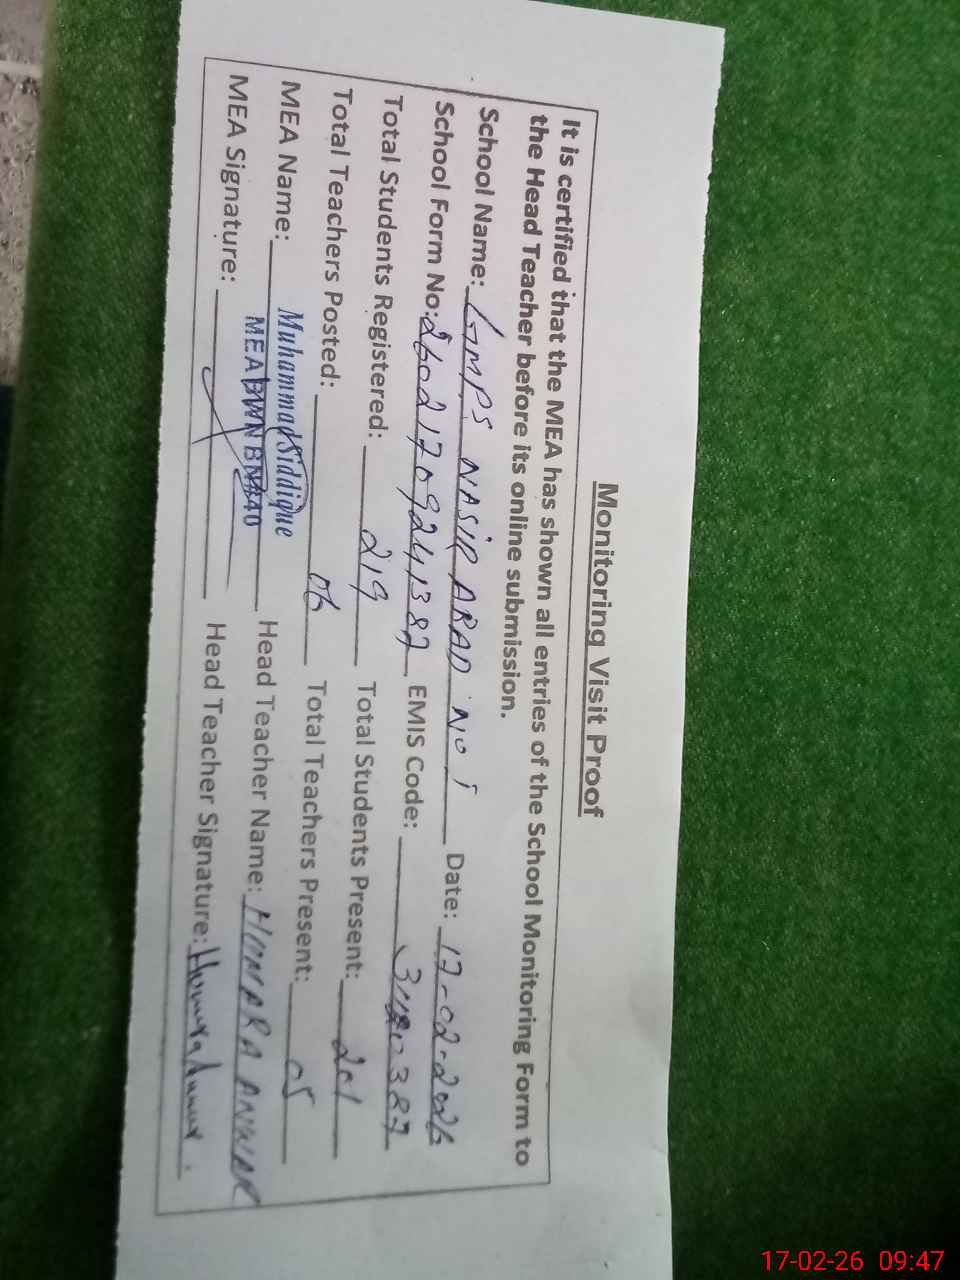 Monitoring Visit Proof
It is certified that the MEA has shown all entries of the School Monitoring Form to
the Head Teacher before its online submission.
School Name: GMPS NASIR ARAD No 1 Date: 17-02-2026
School Form No: 26021709241387 EMIS Code: 31120387
Total Students Registered: 219 Total Students Present: 201
Total Teachers Posted: 06 Total Teachers Present: 05
MEA Name: Muhammad Siddique Head Teacher Name: HUMERA ANWAR
MEA BWN
MEA Signature: Head Teacher Signature: Humera Anwar.
17-02-26 09:47